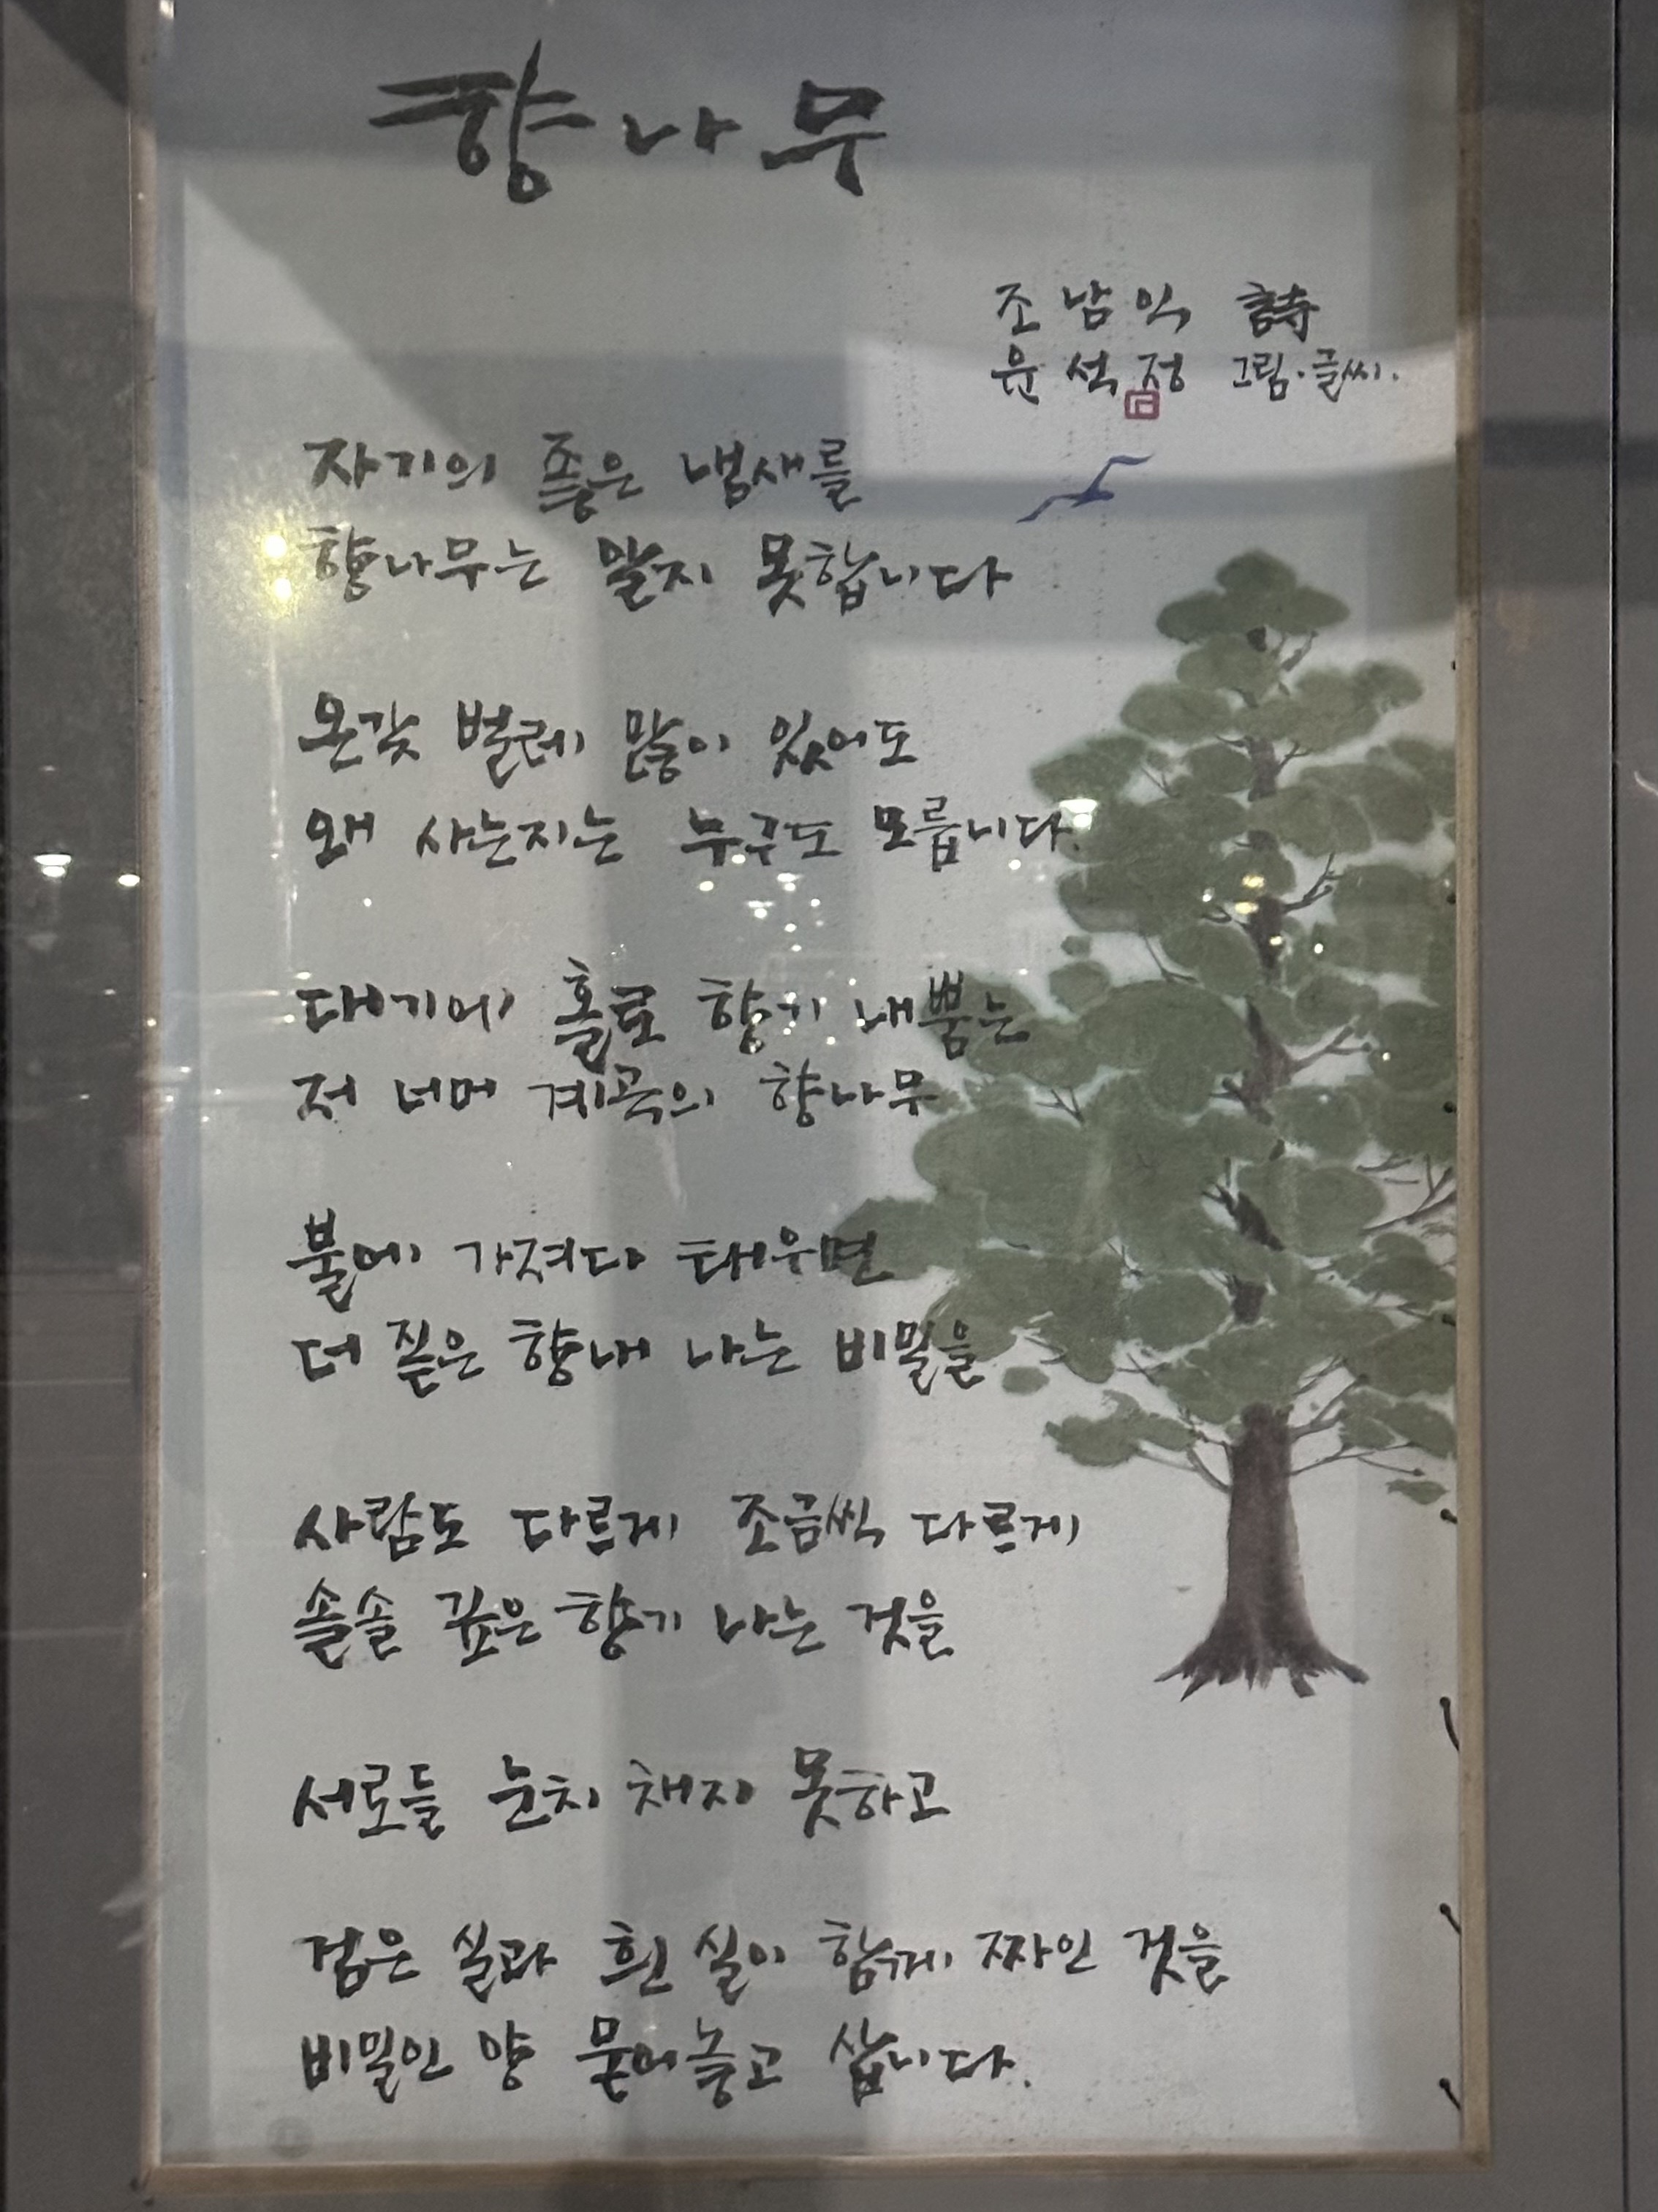 향나무
조남익 詩
윤석정 그림·글씨.
자기의 좋은 냄새를
향나무는 맡지 못합니다
온갖 벌레 많이 있어도
왜 사는지는 누구도 모릅니다.
대기에 홀로 향기 내뿜는
저 너머 계곡의 향나무
불에 가져다 태우면
더 짙은 향내 나는 비밀을
사람도 다르게 조금씩 다르게
솔솔 깊은 향기 나는 것을
서로들 눈치 채지 못하고
검은 실과 흰 실이 함께 짜인 것을
비밀인 양 묻어놓고 삽니다.